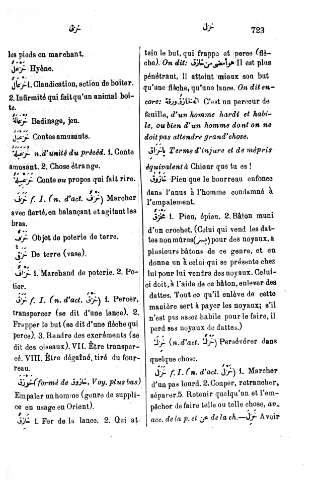 خزق
خزل
723
les pieds en marchant.
خزعل Hyène.
خزعال 1. Claudication, action de boiter.
2. Infirmité qui fait qu'un animal boi-
te.
Badinage, jeu.
Contes amusants.
n. d'unité du précéd. 1. Conte
amusant. 2. Chose étrange.
Conte ou propos qui fait rire.
خزف f. I. (n. d'act. خزف) Marcher
avec fierté, en balançant et agitant les
bras.
خزف Objet de poterie de terre.
De terre (vase).
1. Marchand de poterie. 2. Po-
tier.
خزق f. I. (n. d'act. خزق) 1. Percer,
transpercer (se dit d'une lance). 2.
Frapper le but (se dit d'une flèche qui
perce). 3. Rendre des excréments (se
dit des oiseaux). VII. Être transper-
cé. VIII. Être dégainé, tiré du four-
reau.
(formé de خازوق, Voy. plus bas)
Empaler un homme (genre de suppli-
ce en usage en Orient).
خازق 1. Fer de la lance. 2. Qui at-
tein le but, qui frappe et perce (flè-
che). On dit: Il est plus
pénétrant, il atteint mieux son but
qu'une flèche, qu'une lance. On dit en-
core: C'est un perceur de
feuille, d'un homme hardi et habi-
le, ou bien d'un homme dont on ne
doit pas attendre grand'chose.
Terme d'injure et de mépris
équivalent à Chieur que tu es !
خازوق Pieu que le bourreau enfonce
dans l'anus à l'homme condamné à
l'empalement.
1. Pieu, épieu. 2. Bâton muni
d'un crochet. (Celui qui vend les dat-
tes non mûres (بسر) pour des noyaux, a
plusieurs bâtons de ce genre, et en
donne un à celui qui se présente chez
lui pour lui vendre des noyaux. Celui-
ci doit, à l'aide de ce bâton, enlever des
dattes. Tout ce qu'il enlève de cette
manière sert à payer les noyaux, s'il
n'est pas assez habile pour le faire, il
perd ses noyaux de dattes.)
(n. d'act.) Persévérer dans
quelque chose.
خزل f. I. (n. d'act. خزل) 1. Marcher
d'un pas lourd. 2. Couper, retrancher,
séparer. 3. Retenir quelqu'un et l'em-
pêcher de faire telle ou telle chose, av.
acc. de la p. et عن de la ch. — خزل Avoir